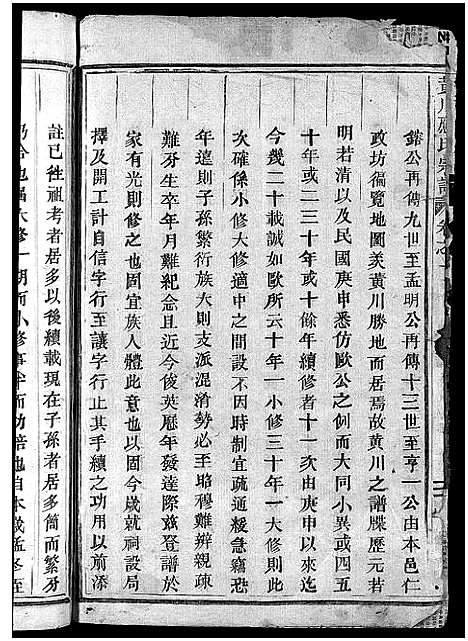 黃川應氏宗譜
鎔公再傳九世至孟明公再傳十三世至亨一公由本邑仁
政坊徧覽地圖羡黄川勝地而居焉故黃川之譜牒歷元若
明若清以及民國庚申悉仿歐公之例而大同小異或四五
十年或二三十年或十餘年續修者十一次由庚申以來迄
今幾二十載誠如歐所云十年一小修三十年一大修則此
次確係小修大修適中之間設不因時制宜疏通綬急竊恐
年遠則子孫繁衍族大則支派混淆勢必至昭穆難辨親疎
難分生卒年月難紀念且近今俊英歷年發達際茲登譜於
家有光則修之也固宜族人體此意也以國今歲就祠設局
擇及開工計自信字行至讓字行止其手續之功用以前添
註已往祖考者居多以後續載現在子孫者居多簡而繁分